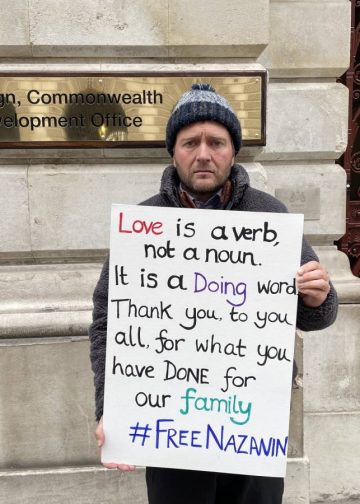 gn, Commonwealth
velopment Office
Love is a verb,
not a noun.
It is a Doing word.
Thank you, to you
all, for what you
have DONE for
our family
#FREENAZANIN